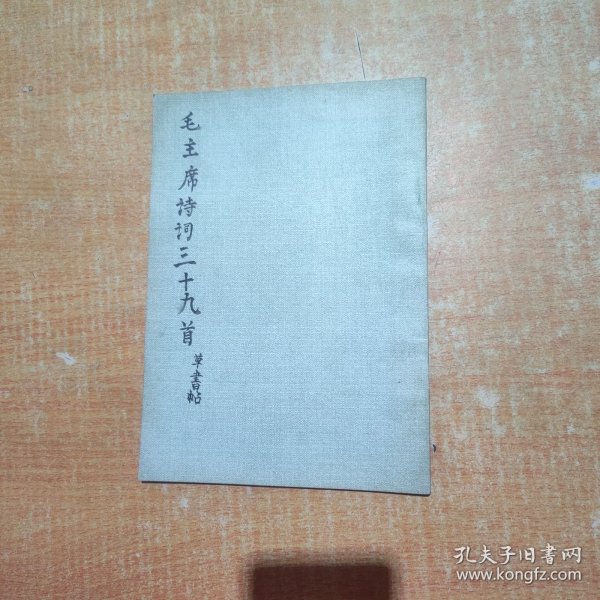 毛主席诗词三十九首
草書帖
孔夫子旧書网
www.kongfz.com